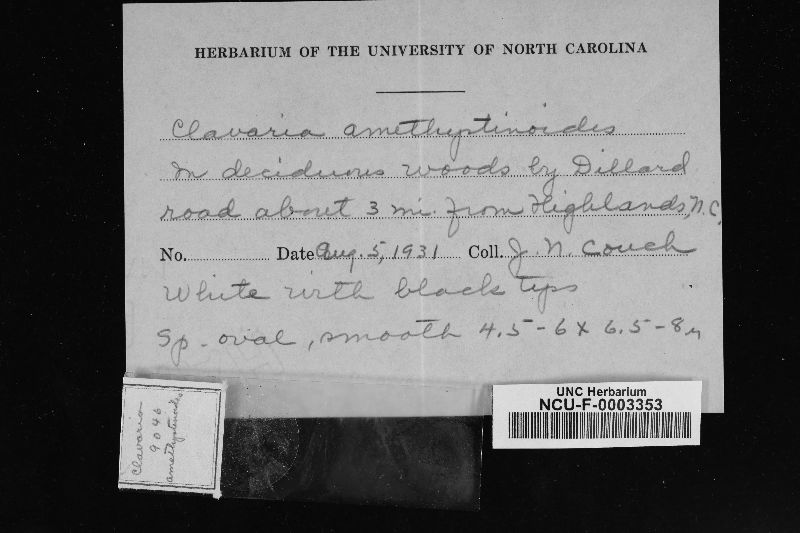 HERBARIUM OF THE UNIVERSITY OF NORTH CAROLINA
Clavaria amethystinoides
In deciduous woods by Dillard
road about 3 mi. from Highlands, N.C.
No. Date Aug. 5, 1931 Coll. J. N. Couch
White with black tips
Sp. oval, smooth 4.5-6 x 6.5-8µ
Clavaria
9046
amethystinoides
UNC Herbarium
NCU-F-0003353